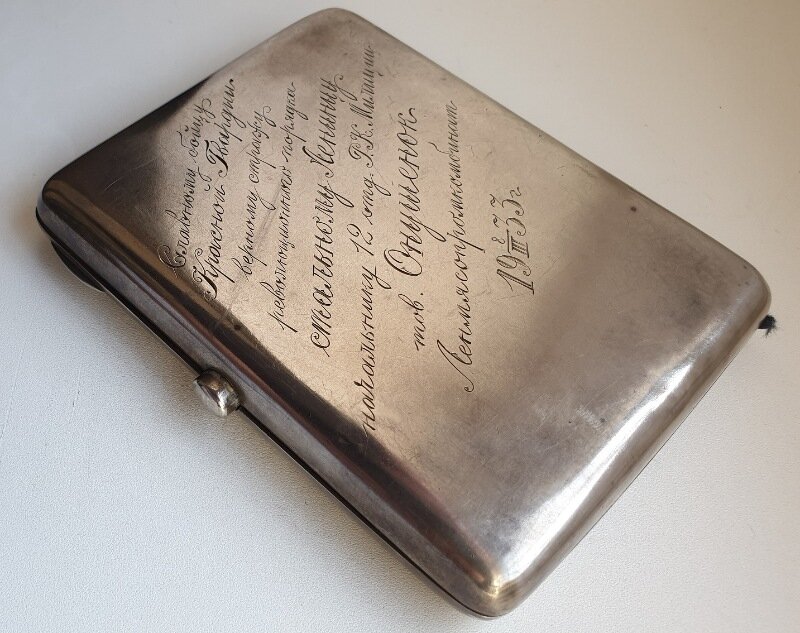 Славному бойцу
Красной Гвардии
верному стражу
революционного порядка
стальному Ленинцу
начальнику 12 отд. Р.К. Милиции
тов. Онушенок
Ленмясопромкомбинат
19 8/III 33 г.